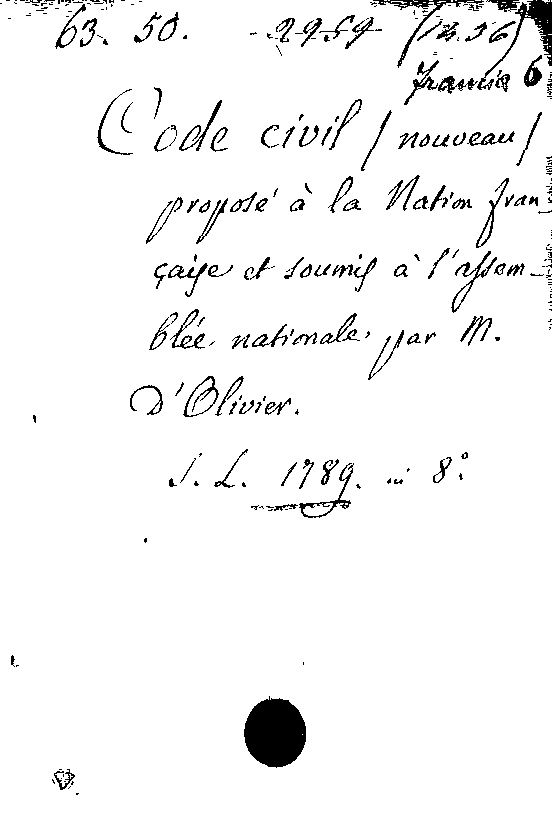 63. 50. 2959 (1356)
francia 6
Code civil (nouveau)
proposé à la Nation fran-
çaise et soumis à l'assem-
blée nationale par M.
D'Olivier.
S. L. 1789. in 8º.